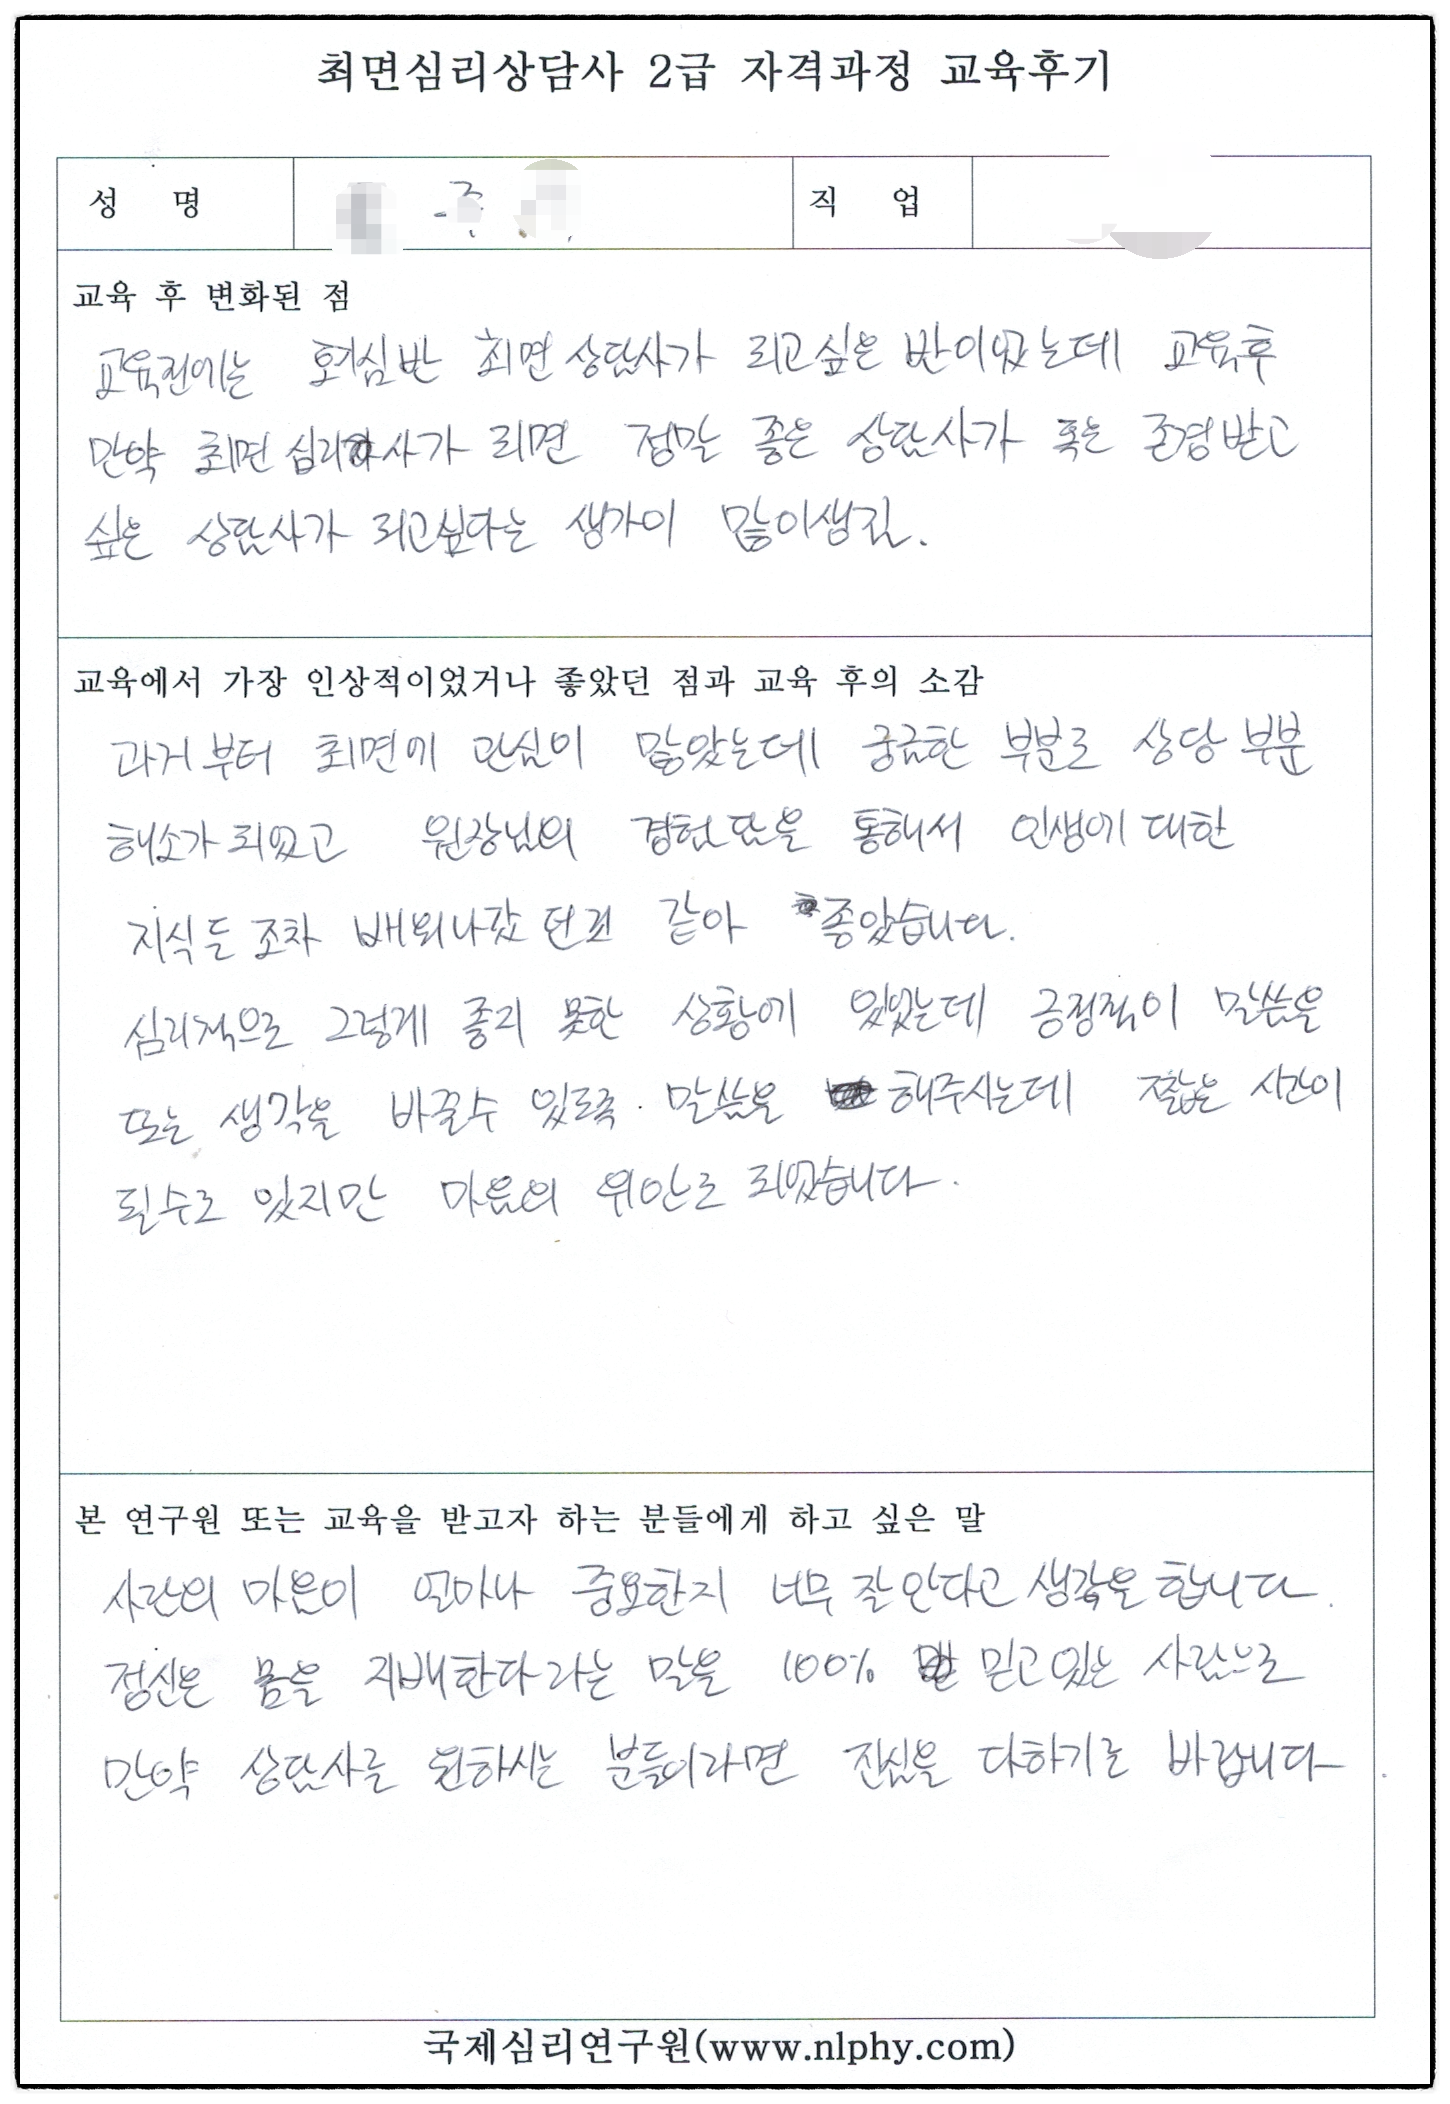 최면심리상담사 2급 자격과정 교육후기
성 명
직 업
교육 후 변화된 점
교육전에는 호기심반 최면상담사가 되고싶은 반이었는데 교육후
만약 최면심리사가 되면 정말 좋은 상담사가 혹은 존경받고
싶은 상담사가 되고싶다는 생각이 많이생김.
교육에서 가장 인상적이었거나 좋았던 점과 교육 후의 소감
과거부터 최면에 관심이 많았는데 궁금한 부분도 상당 부분
해소가 되었고 원장님의 경험담을 통해서 인생에 대한
지식들 조차 배워나갔던것 같아 좋았습니다.
심리적으로 그렇게 좋지 못한 상황에 있었는데 긍정적이 말씀을
또는 생각을 바꿀수 있도록 말씀을 해주시는데 짧은 시간이
될수도 있지만 마음의 위안도 되었습니다.
본 연구원 또는 교육을 받고자 하는 분들에게 하고 싶은 말
사람의 마음이 얼마나 중요한지 너무 잘 안다고 생각을 합니다.
정신은 몸을 지배한다라는 말을 100% 믿고있는 사람으로
만약 상담사를 원하시는 분들이라면 진심을 다하기를 바랍니다.
국제심리연구원(www.nlphy.com)